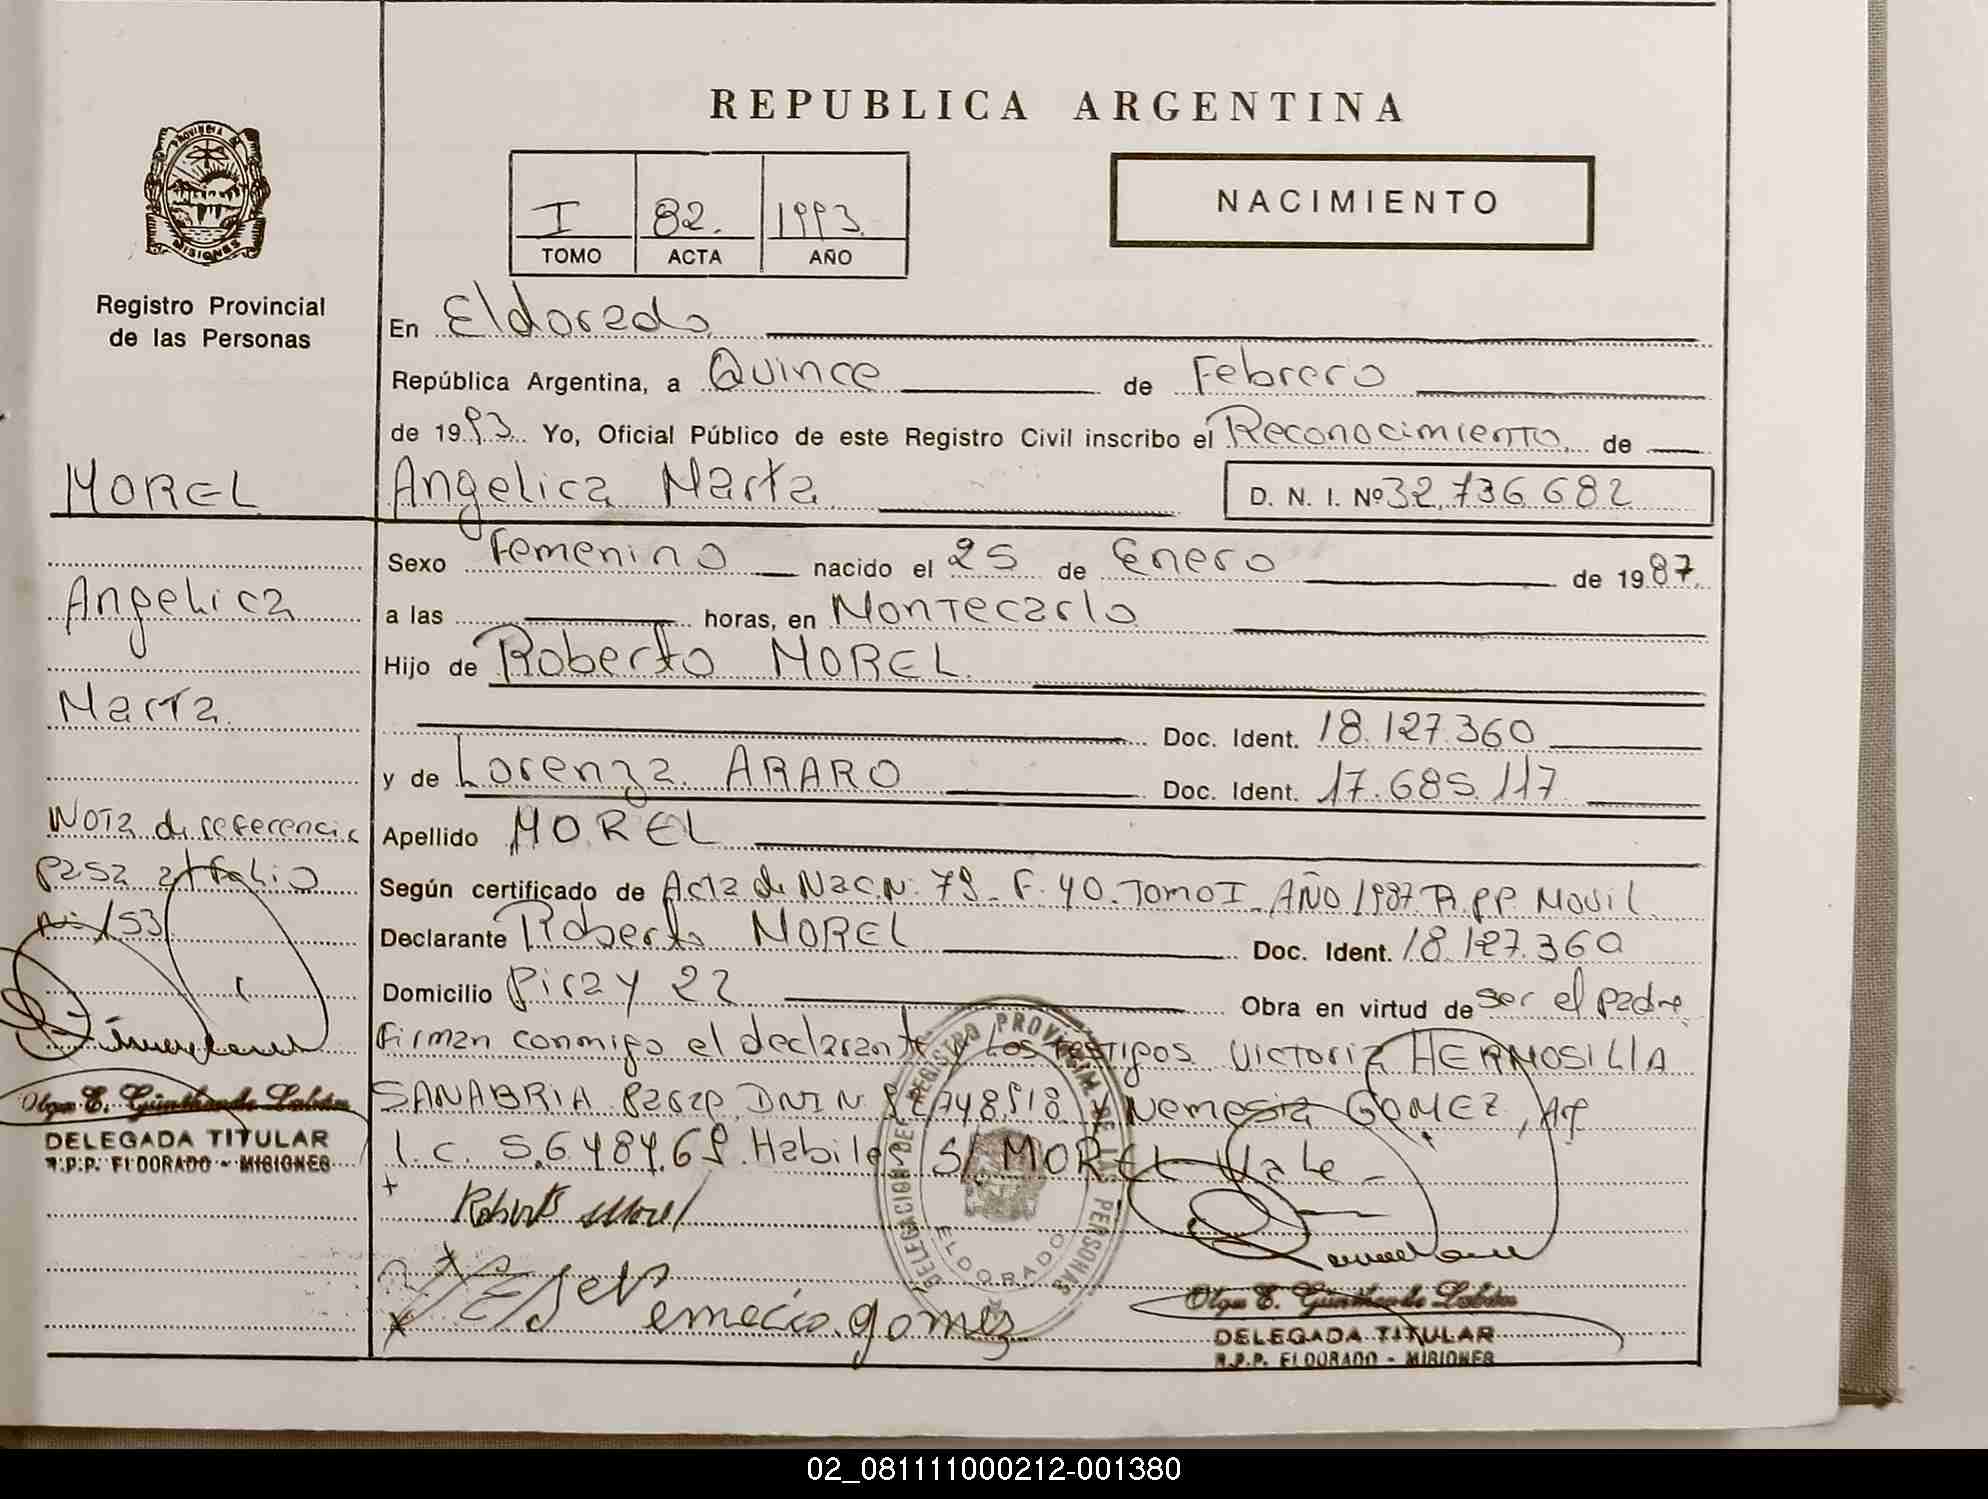 PROVINCIA DE
MISIONES
Registro Provincial
de las Personas
MOREL
Angelica
Marta
Nota de referencia
pasa al folio
Nº 153
Olga E. Günther de Labán
DELEGADA TITULAR
R.P.P. ELDORADO - MISIONES
REPUBLICA ARGENTINA
I 82. 1993.
TOMO ACTA AÑO
NACIMIENTO
En Eldorado
República Argentina, a Quince de Febrero
de 1993. Yo, Oficial Público de este Registro Civil inscribo el Reconocimiento de
Angelica Marta D. N. I. Nº 32.736.682
Sexo Femenino nacido el 25 de Enero de 1987.
a las horas, en Montecarlo
Hijo de Roberto MOREL.
Doc. Ident. 18.127.360
y de Lorenza ARARO Doc. Ident. 17.685.117
Apellido MOREL
Según certificado de Acta de Nac. N. 79 - F. 40. Tomo I - AÑO 1987 R.P.P. Movil
Declarante Roberto MOREL Doc. Ident. 18.127.360
Domicilio Piray 22 Obra en virtud de ser el padre
Firman conmigo el declarante y los testigos Victoria HERMOSILLA
SANABRIA Parag. DNI N. y Nemesia GOMEZ, Arg
L.C. 5.648.469. Habiles S/ MOREL Vale -
Roberto Morel
Nemecia gomez
DELEGACION DEL REGISTRO PROVINCIAL DE LAS PERSONAS
ELDORADO
Olga E. Günther de Labán
DELEGADA TITULAR
R.P.P. ELDORADO - MISIONES
02_081111000212-001380